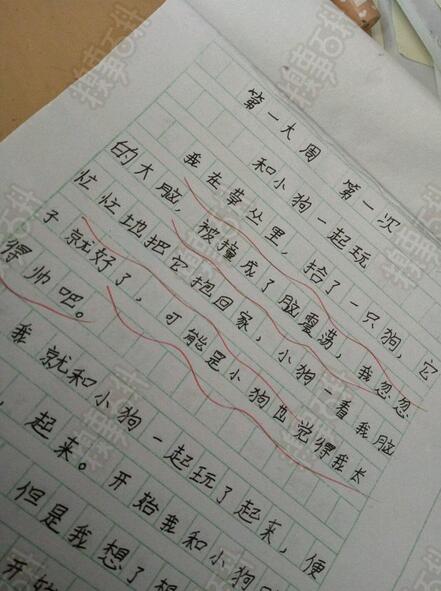 第一大周 第一次
和小狗一起玩
我在草丛里，拾了一只狗，它
的大脑，被撞成了脑震荡，我忽忽
忙忙地把它抱回家，小狗一看我脑
子就好了，可能是小狗也觉得我长
得帅吧。
我就和小狗一起玩了起来，便
起来。开始我和小狗
但是我想了